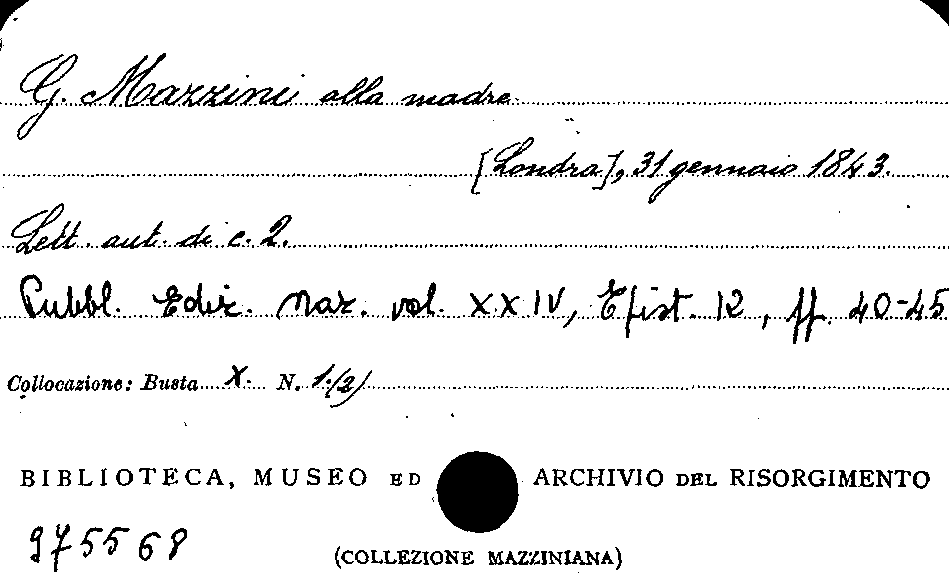 G. Mazzini alla madre
[Londra], 31 gennaio 1843.
Lett. aut. di c. 2.
Pubbl. Ediz. Naz. vol. XXIV, Epist. 12, ff. 40-45
Collocazione: Busta X. N. 1.(2)
BIBLIOTECA, MUSEO ED ARCHIVIO DEL RISORGIMENTO
975568
(COLLEZIONE MAZZINIANA)